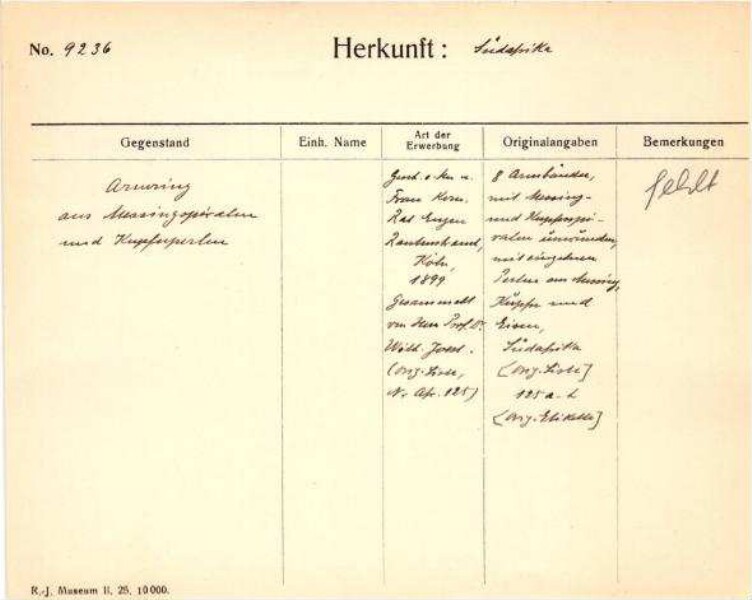 No. 9236
Herkunft: Südafrika
Gegenstand
Einh. Name
Art der Erwerbung
Originalangaben
Bemerkungen
Armring
aus Messingspiralen
und Kupferperlen
Gesch. v. Hrn u.
Frau Kom.
Rat Eugen
Rautenstrauch,
Köln,
1899
Gesammelt
von Herrn Prof. Dr.
Wilh. Joest.
(Orig.-Liste,
Nr. Afr. 125)
8 Armbänder,
mit Messing-
und Kupferspi-
ralen umwunden,
mit einzelnen
Perlen aus Messing,
Kupfer und
Eisen,
Südafrika
[Orig.-Liste]
125 a-h
[Orig. Etikette]
fehlt
R.-J. Museum II. 25. 10000.